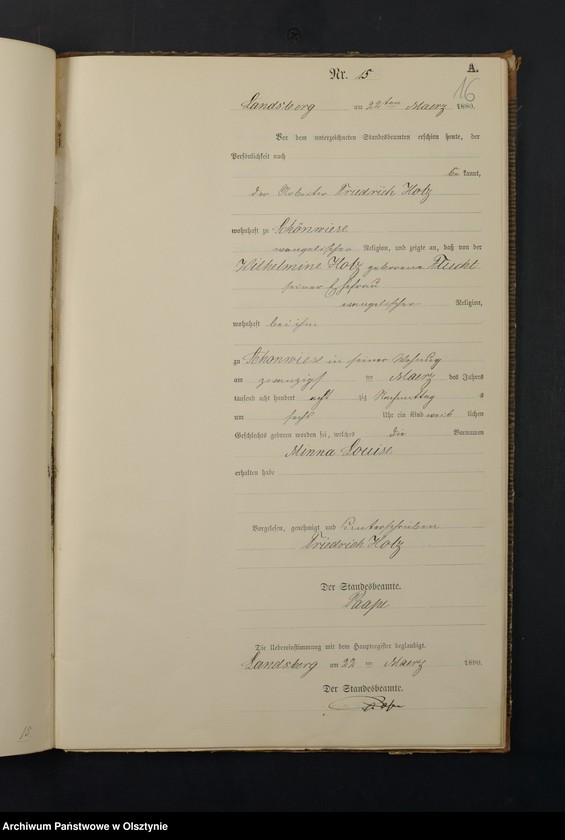 A.
Nr. 15
16
Landsberg am 22ten Maerz 1890.
Vor dem unterzeichneten Standesbeamten erschien heute, der
Persönlichkeit nach
be kannt,
der Friedrich Holz
wohnhaft zu Schönwiese
evangelischer Religion, und zeigte an, daß von der
Wilhelmine Holz geborene
seiner Ehefrau
evangelischer Religion,
wohnhaft bei ihm
zu Schönwiese in seiner Wohnung
am zwanzigst en Maerz des Jahres
tausend acht hundert acht zig Nachmittag s
um sechs Uhr ein Kind weib lichen
Geschlechts geboren worden sei, welches die Vornamen
Minna Louise
erhalten habe
Vorgelesen, genehmigt und unterschrieben
Friedrich Holz
Der Standesbeamte.
Die Uebereinstimmung mit dem Hauptregister beglaubigt.
Landsberg am 22 ten Maerz 1890.
Der Standesbeamte.
15
Archiwum Państwowe w Olsztynie